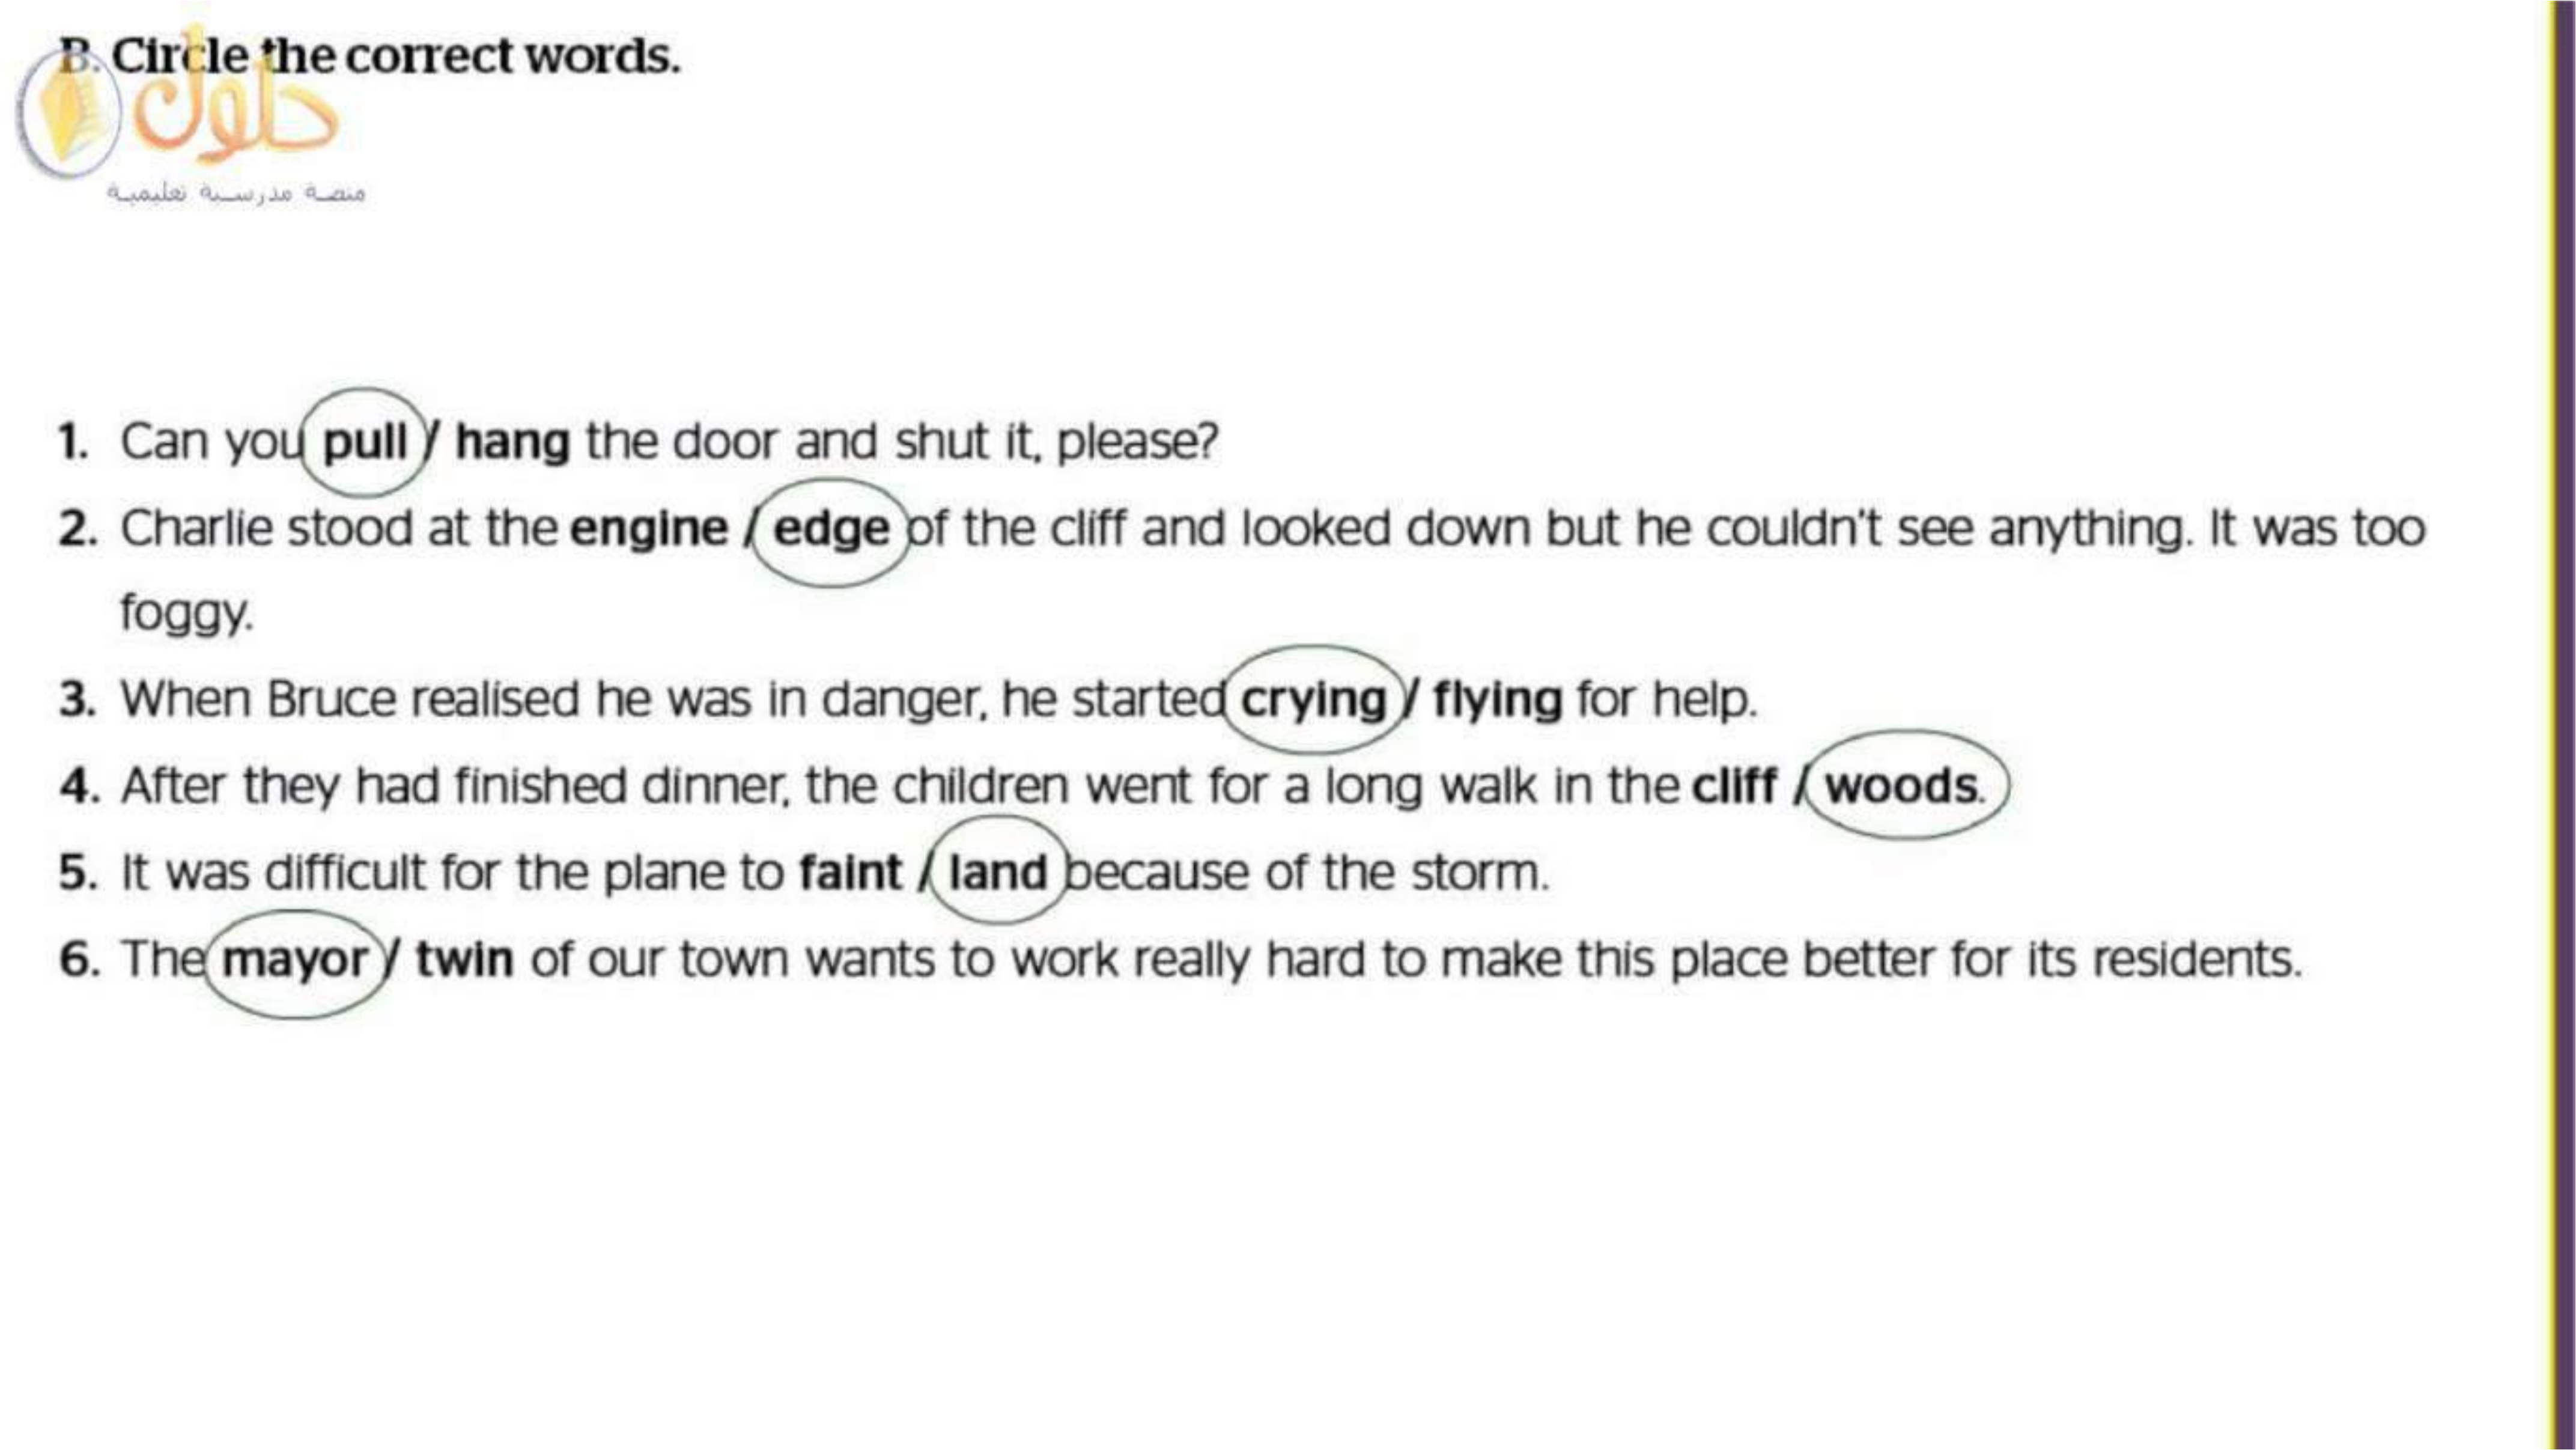 B. Circle the correct words.
حلول
منصة مدرسية تعليمية
1. Can you pull / hang the door and shut it, please?
2. Charlie stood at the engine / edge of the cliff and looked down but he couldn't see anything. It was too
foggy.
3. When Bruce realised he was in danger, he started crying / flying for help.
4. After they had finished dinner, the children went for a long walk in the cliff / woods.
5. It was difficult for the plane to faint / land because of the storm.
6. The mayor / twin of our town wants to work really hard to make this place better for its residents.